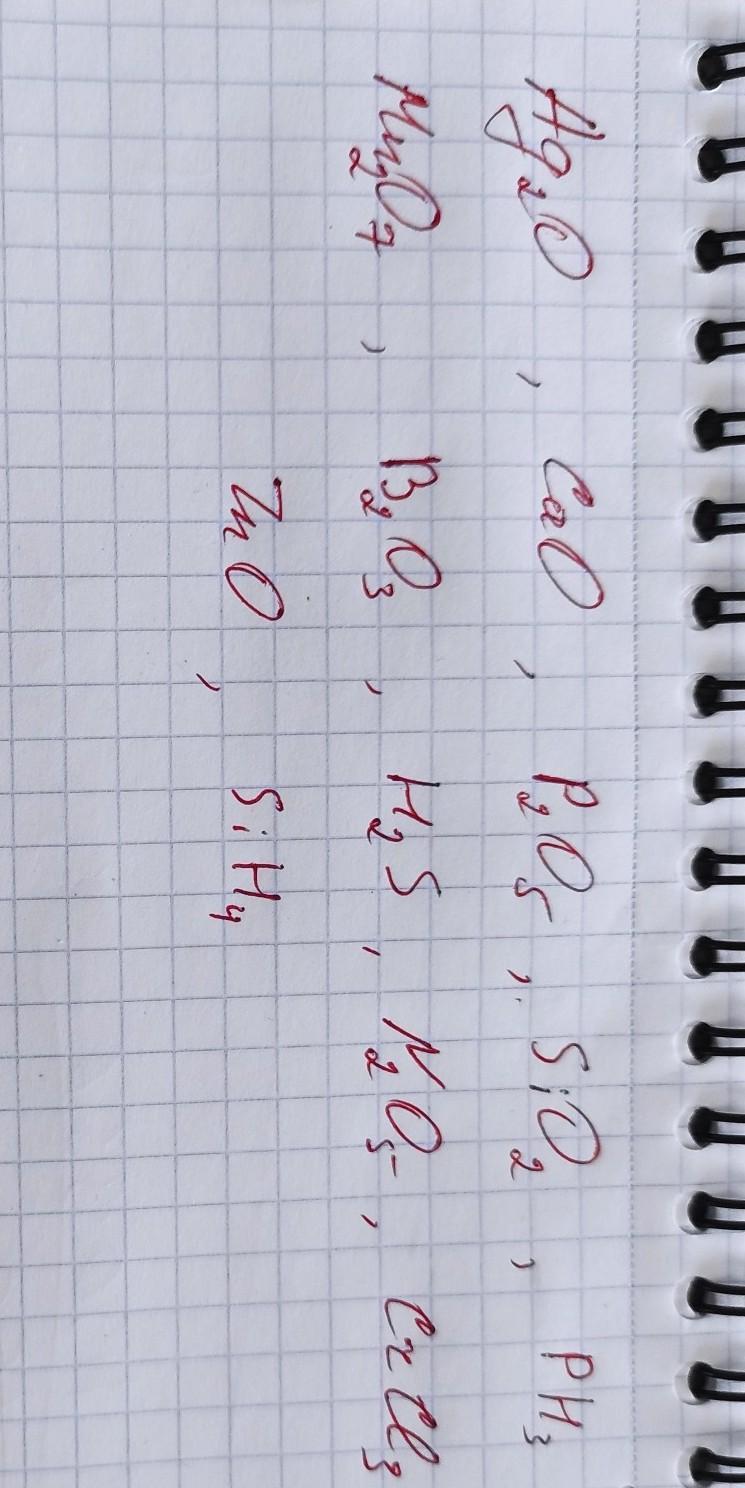 Ag₂O , CaO , P₂O₅ , SiO₂ , PH₃
Mn₂O₇ , B₂O₃ , H₂S , N₂O₅ , CrCl₃
ZnO , SiH₄